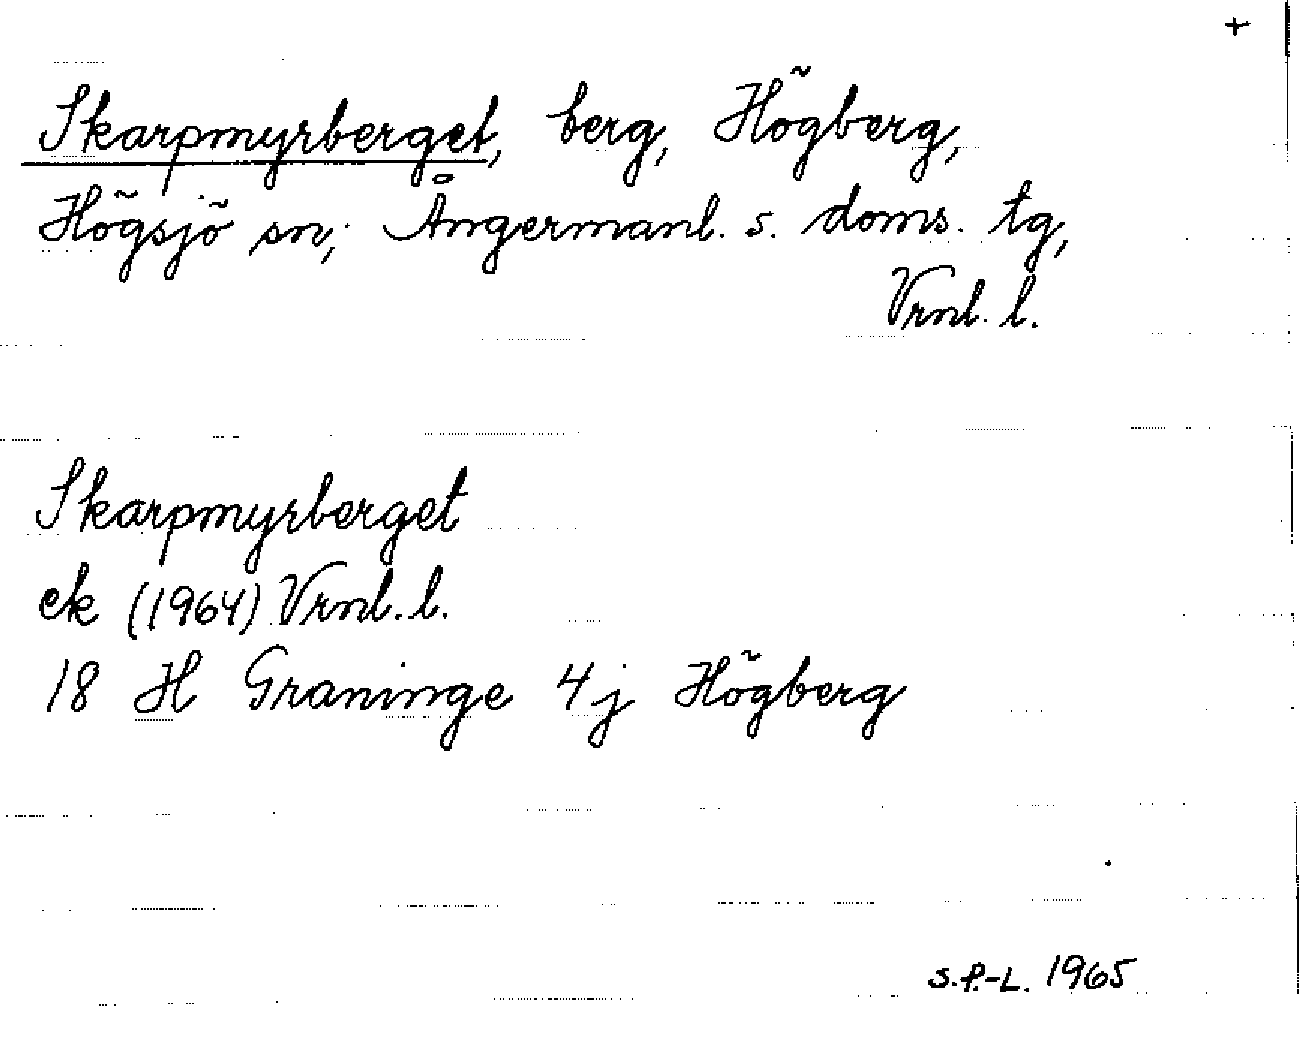 +
Skarpmyrberget, berg, Högberg,
Högsjö sn, Ångermanl. s. doms. tg,
Vrnl. l.
Skarpmyrberget
ek (1964) Vrnl. l.
18 H Graninge 4j Högberg
S.P.-L. 1965